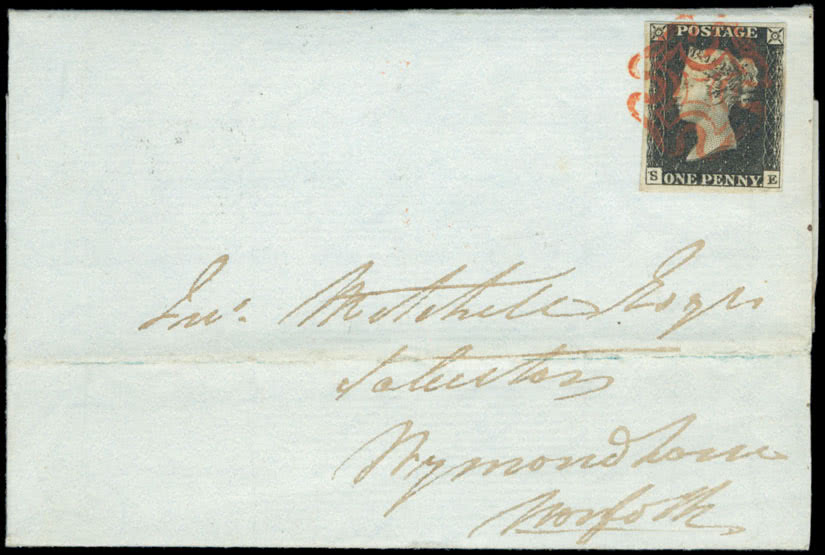 POSTAGE
S E
ONE PENNY.
Jno. Mitchell Esqr
Solicitor
Wymondham
Norfolk